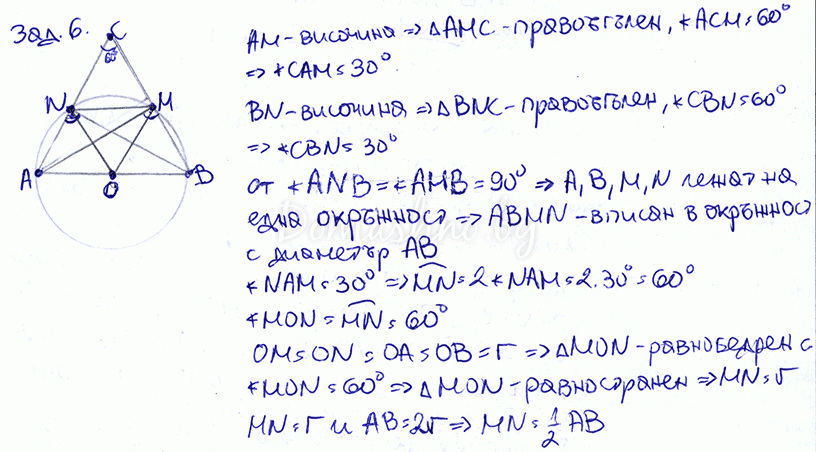 Зад. 6.
C
60°
N
M
A
O
B
AM - височина => ΔAMC - правоъгълен, ∢ACM = 60°
=> ∢CAM = 30°
BN - височина => ΔBNC - правоъгълен, ∢CBN = 60°
=> ∢CBN = 30°
от ∢ANB = ∢AMB = 90° => A, B, M, N лежат на
една окръжност => ABMN - вписан в окръжност
с диаметър AB
∢NAM = 30° => M͡N = 2∢NAM = 2.30° = 60°
∢MON = M͡N = 60°
OM = ON = OA = OB = r => ΔMON - равнобедрен с
∢MON = 60° => ΔMON - равносранен => MN = r
MN = r и AB = 2r => MN = 1/2 AB